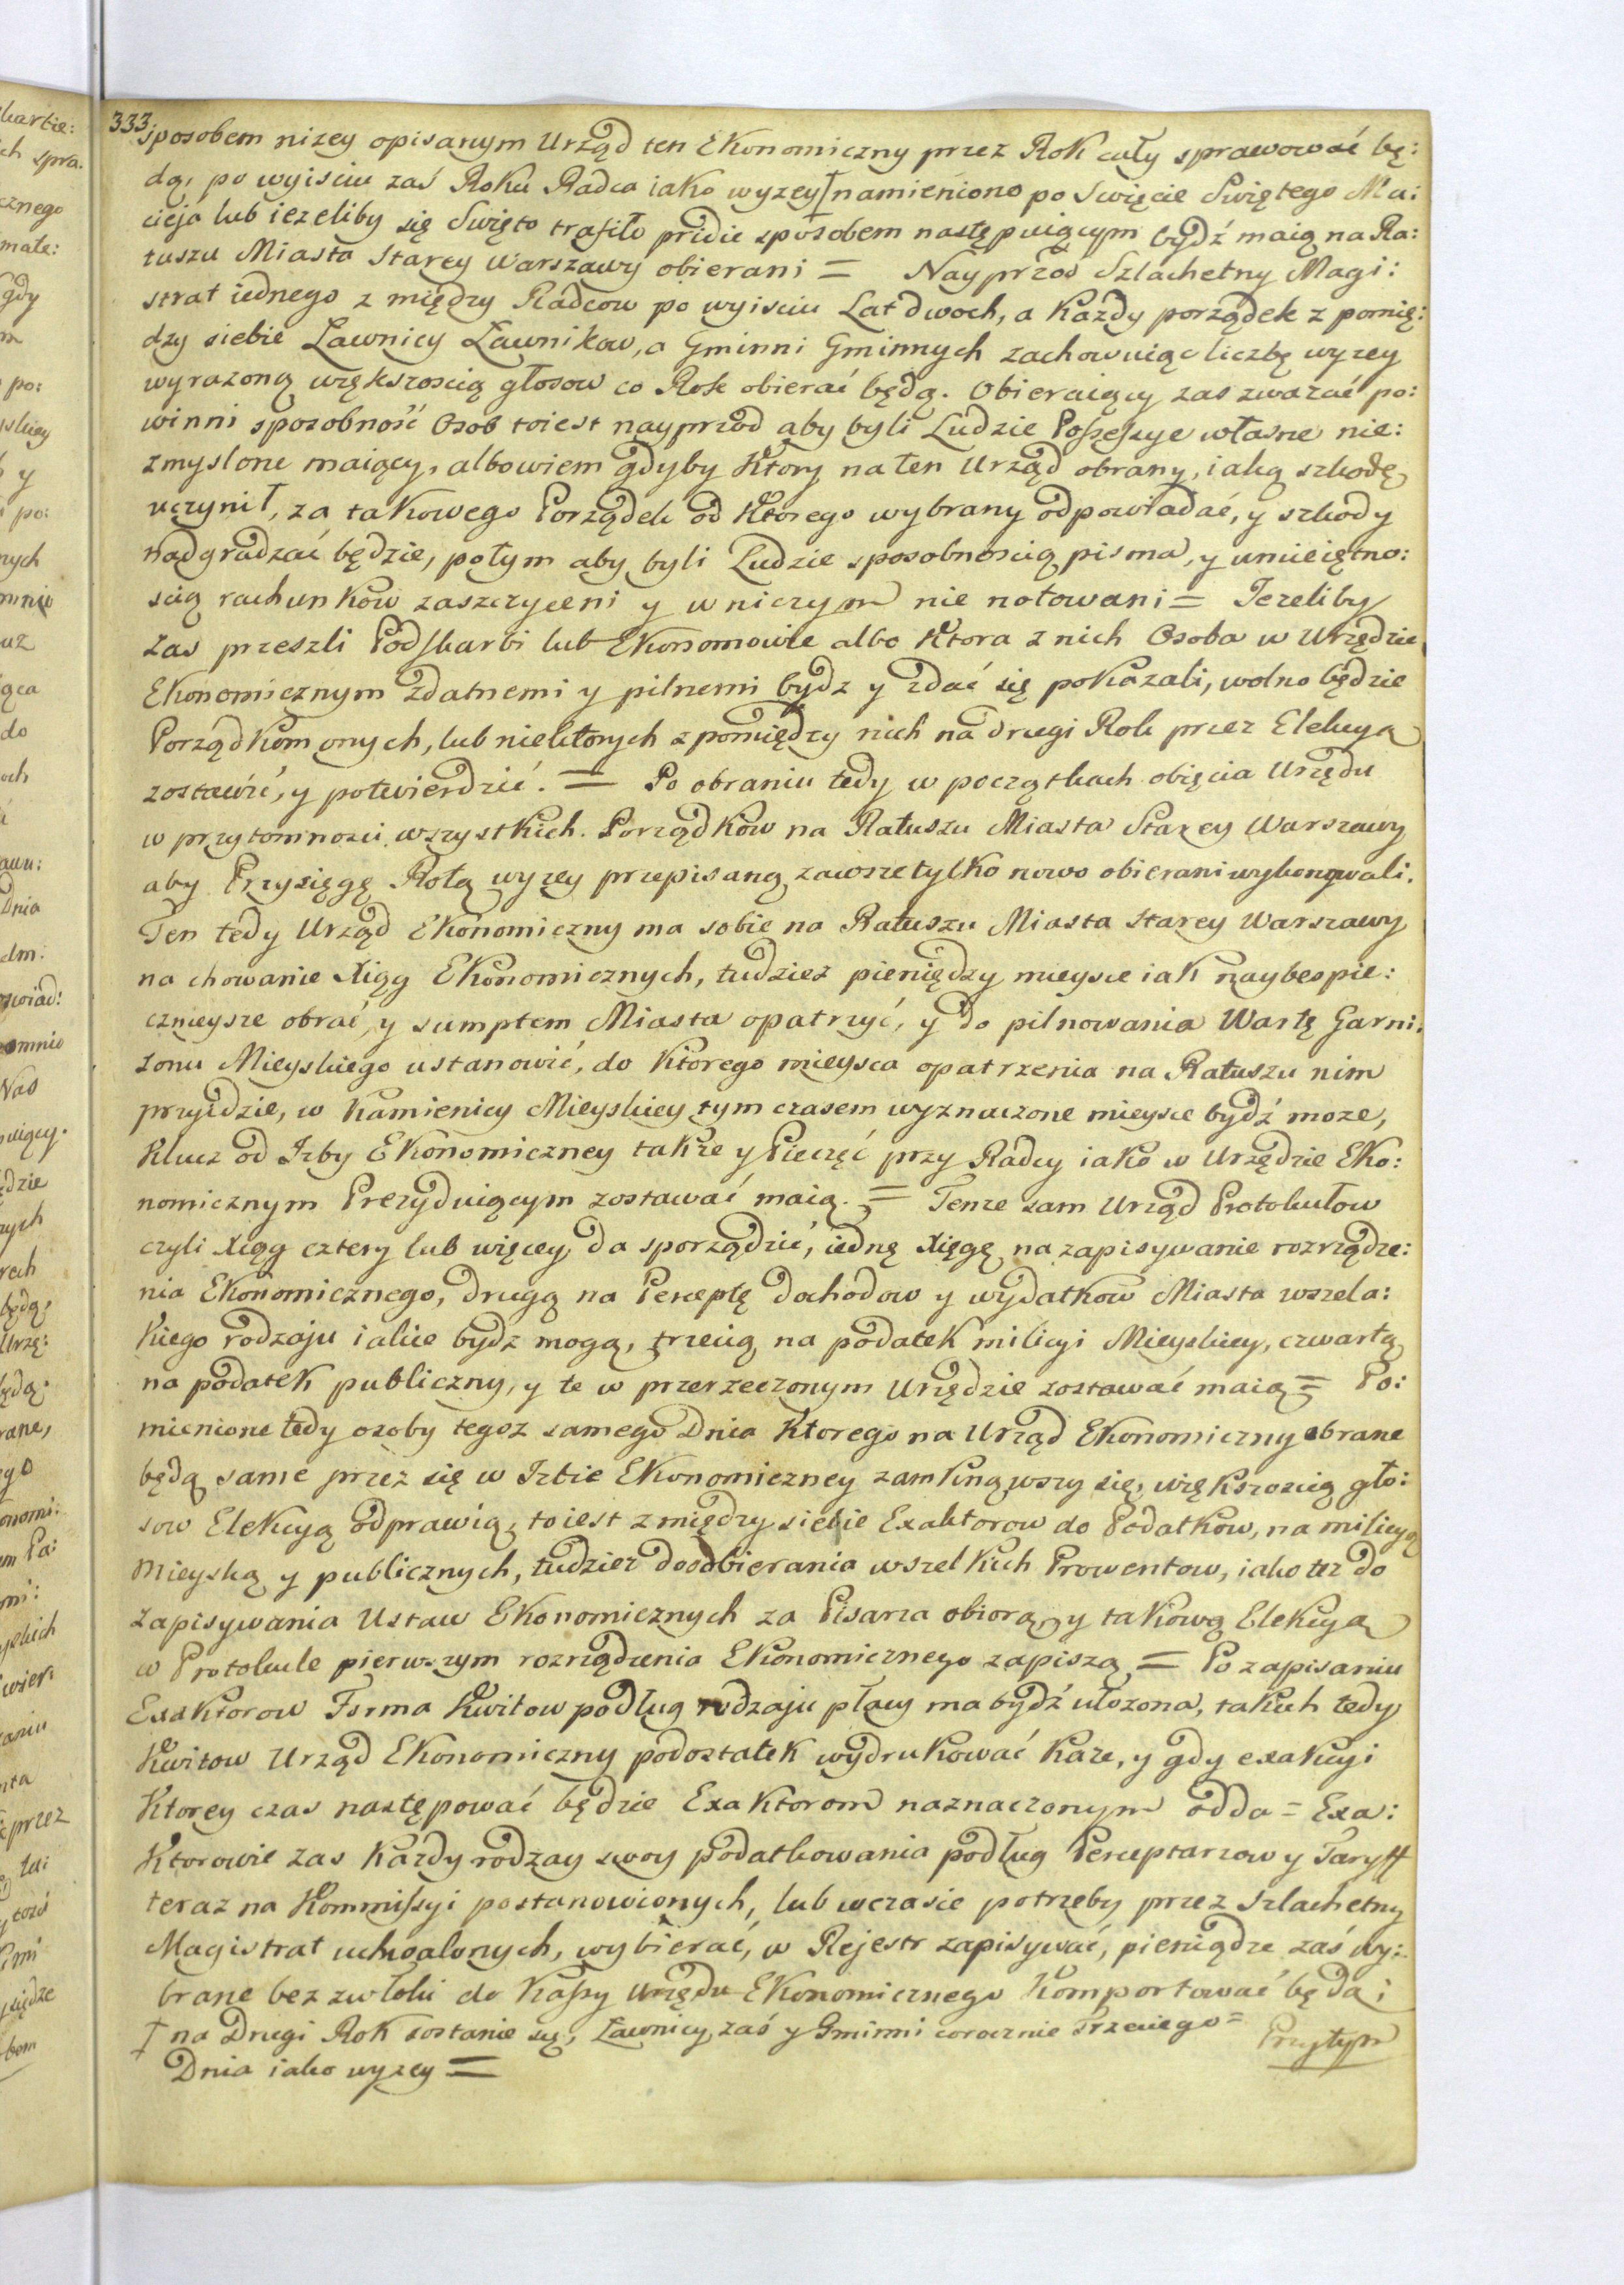 333.
sposobem nizey opisanym Urząd ten Ekonomiczny przez Rok cały sprawować bę:
dą, po wyisciu zaś Roku Radca iako wyzey ‡ namieniono po Swięcie Swiętego Ma:
cieja lub iezeliby się Swięto trafiło pridie sposobem następuiącym bydź maią na Ra:
tuszu Miasta Starey Warszawy obierani = Nayprzod Szlachetny Magi:
strat iednego z między Radcow po wyisciu Lat dwoch, a Kazdy porządek z pomię:
dzy siebie Ławnicy Ławnikow, a Gminni Gminnych zachowuiąc liczbę wyzey
wyrazoną większoscią głosow co Rok obierać będą. Obieraiący zas zwazać po:
winni sposobność Osob toiest nayprzod aby byli Ludzie Possessye własne nie:
zmyslone maiący, albowiem gdyby Ktory na ten Urząd obrany, iaką szkodę
uczynił, za takowego Porządek od Ktorego wybrany odpowiadać, y szkody
nadgradzać będzie, potym aby byli Ludzie sposobnoscią pisma, y umieiętno:
scią rachunkow zaszczyceni y w niczym nie notowani = Jezeliby
zas przeszli Podskarbi lub Ekonomowie albo Ktora z nich Osoba w Urzędzie
Ekonomicznym zdatnemi y pilnemi bydz y zdać się pokazali, wolno będzie
Porządkom onych, lub niektorych z pomiędzy nich na drugi Rok przez Elekcyą
zostawić, y potwierdzić. = Po obraniu tedy w początkach obięcia Urzędu
w przytomnosci wszystkich Porządkow na Ratuszu Miasta Starey Warszawy
aby Przysięgę Rotą wyzey przepisaną zawsze tylko nowo obierani wykonywali.
Ten tedy Urząd Ekonomiczny ma sobie na Ratuszu Miasta Starey Warszawy
na chowanie Xiąg Ekonomicznych, tudziez pieniędzy mieysce iak naybespie:
cznieysze obrać, y sumptem Miasta opatrzyć, y do pilnowania Wartę Garni:
zonu Mieyskiego ustanowić, do Ktorego mieysca opatrzenia na Ratuszu nim
przyidzie, w Kamienicy Mieyskiey tym czasem wyznaczone mieysce bydź moze,
Klucz od Izby Ekonomiczney takze y Pieczęć przy Radcy iako w Urzędzie Eko:
nomicznym Prezyduiącym zostawać maią. = Tenze sam Urząd Protokułow
czyli Xiąg cztery lub więcey da sporządzić, iednę Xięgę na zapisywanie rozrządze:
nia Ekonomicznego, drugą na Perceptę dochodow y wydatkow Miasta wszela:
kiego rodzaju iakie bydz mogą, trzecią na podatek milicyi Mieyskiey, czwartą
na podatek publiczny, y te w przerzeczonym Urzędzie zostawać maią = Po:
mienione tedy osoby tegoz samego Dnia Ktorego na Urząd Ekonomiczny obrane
będą same przez się w Izbie Ekonomiczney zamknąwszy się, większoscią gło:
sow Elekcyą odprawią, toiest z między siebie Exaktorow do Podatkow, na milicyą
Mieyską y publicznych, tudziez do odbierania wszelkich Prowentow, iako tez do
zapisywania Ustaw Ekonomicznych za Pisarza obiorą, y takową Elekcyą
w Protokule pierwszym rozrządzenia Ekonomicznego zapiszą = Po zapisaniu
Exaktorow Forma Kwitow podług rodzaju płacy ma bydź ułozona, takich tedy
Kwitow Urząd Ekonomiczny podostatek wydrukować Kaze, y gdy exakcyi
Ktorey czas następować będzie Exaktorom naznaczonym odda = Exa:
Ktorowie zas Kazdy rodzay swoy podatkowania podług Perceptarzow y Taryff
teraz na Kommissyi postanowionych, lub w czasie potrzeby przez Szlachetny
Magistrat uchwalonych, wybierać, w Rejestr zapisywać, pieniądze zaś wy:
brane bez zwłoki do Kassy Urzędu Ekonomicznego Komportować będą;
‡ na Drugi Rok zostanie się, Ławnicy zaś y Gminni corocznie trzeciego =
Dnia iako wyzey =
Przytym